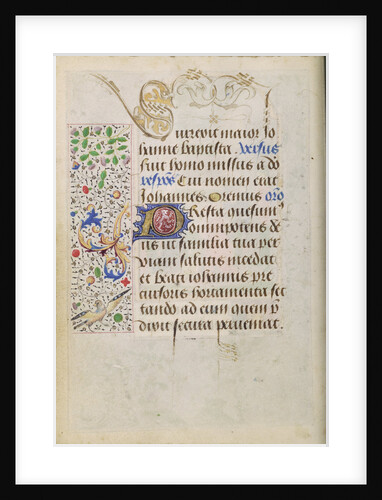 Surrexit maior Jo
hanne baptista. Versus
fuit homo missus a do
Cui nomen erat
Johannes. Oremus oro
Presta quesumꝰ
omnipotens de
us ut familia tua per
viam salutis incedat
et beati iohannis pre
cursoris hortamenta sec
tando ad eum quem p̄
dixit secura perveniat.